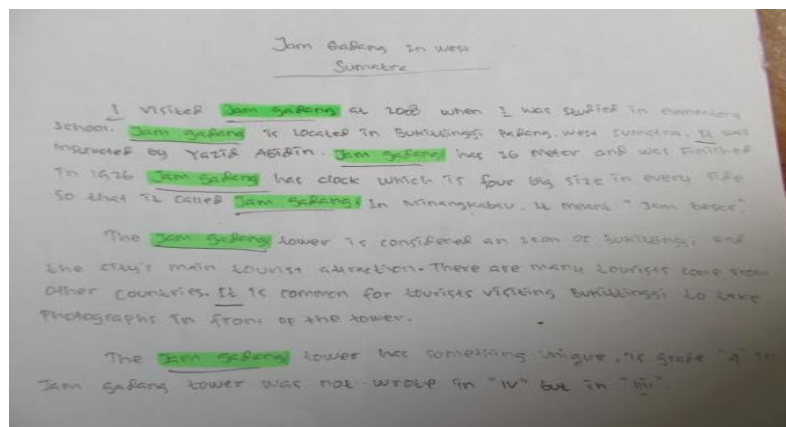 Jam Gadang in west
Sumatra
I visited Jam gadang at 2008 when I was studied in elementary
school. Jam gadang is located in Bukittinggi Padang, west sumatra. It was
instructed by Yazid Abidin. Jam gadang has 26 meter and was Finished
in 1926 Jam gadang has clock which is four big size in every side
so that is called Jam gadang. In Minangkabau, it meant "Jam besar".
The Jam gadang tower is considered an icon of Bukittinggi and
the city's main tourist attraction. There are many tourists come from
other countries. It is common for tourists visiting Bukittinggi to take
photographs in front of the tower.
The Jam gadang tower has something unique, is grade "4" in
Jam gadang tower was not wrote in "IV" but in "IIII".